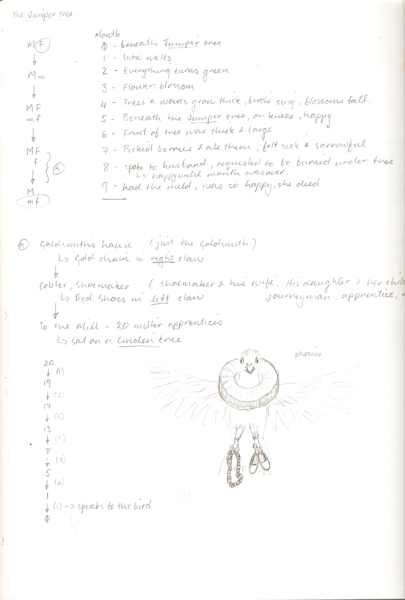 The Juniper Tree
Month
0 - beneath Juniper tree
1 - Snow melts
2 - Everything turns green
3 - Flowers blossom
4 - Trees & woods grow thick, birds sing, blossoms fall.
5 - Beneath the Juniper tree, on knees, happy
6 - Fruit of tree was thick & large
7 - Picked berries & ate them, felt sick & sorrowful
8 - spoke to husband, requested to be buried under tree
↳ happy until month was over.
9 - had the child, was so happy, she died
MF
Mm
MF
mf
MF
f
M
mf
Goldsmiths house (just the Goldsmith)
↳ Gold chain in right claw
Cobler, Shoemaker (shoemaker & his wife. His daughter & her
↳ Red Shoes in left claw journeyman, apprentice,
To the Mill - 20 miller apprentices
↳ sat on a linden tree
phoenix
20
(1)
19
(2)
17
13
8
5
1
(1) → speaks to the bird
0